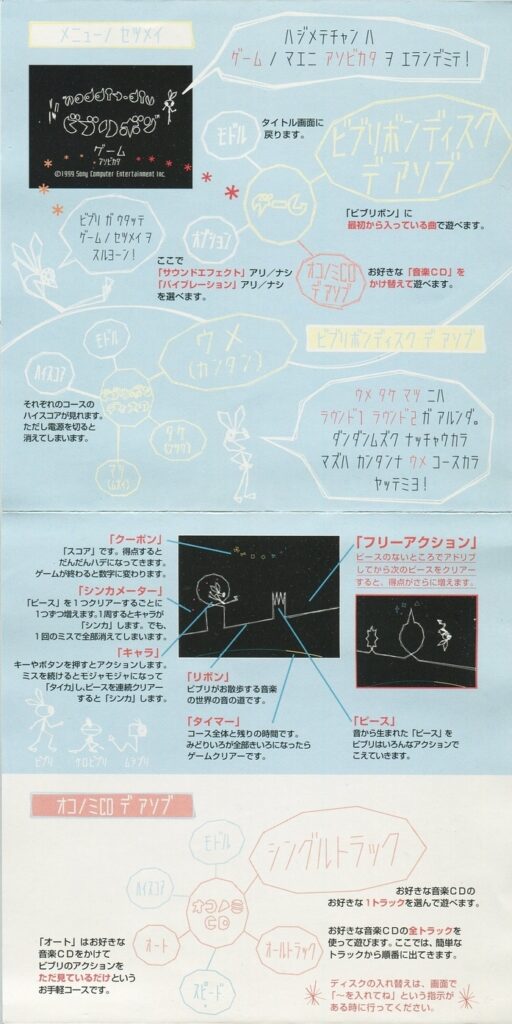 メニューノ セツメイ
ハジメテチャン ハ
ゲーム ノ マエニ アソビカタ ヲ エランデミテ!
ビブリボン
ゲーム
アソビカタ
©1999 Sony Computer Entertainment Inc.
モドル
タイトル画面に
戻ります。
ビブリボンディスク
デ アソブ
ゲーム
「ビブリボン」に
最初から入っている曲で遊べます。
ビブリ ガ ウタッテ
ゲーム ノ セツメイ ヲ
スルヨーン!
オプション
ここで
「サウンドエフェクト」アリ/ナシ
「バイブレーション」アリ/ナシ
を選べます。
オコノミCD
デ アソブ
お好きな「音楽CD」を
かけ替えて遊べます。
ビブリボンディスク デ アソブ
モドル
ウメ
(カンタン)
ハイスコア
それぞれのコースの
ハイスコアが見れます。
ただし電源を切ると
消えてしまいます。
タケ
(フツウ)
マツ
ウメ タケ マツ ニハ
ラウンド1 ラウンド2 ガ アルンダ。
ダンダンムズク ナッチャウカラ
マズハ カンタンナ ウメ コースカラ
ヤッテミヨ!
「クーポン」
「スコア」です。得点すると
だんだんハデになってきます。
ゲームが終わると数字に変わります。
「シンカメーター」
「ピース」を1つクリアーするごとに
1つずつ増えます。1周するとキャラが
「シンカ」します。でも、
1回のミスで全部消えてしまいます。
「キャラ」
キーやボタンを押すとアクションします。
ミスを続けるとモジャモジャになって
「タイカ」し、ピースを連続クリアー
すると「シンカ」します。
ビブリ
ケロビブリ
ムシブリ
「リボン」
ビブリがお散歩する音楽
の世界の音の道です。
「タイマー」
コース全体と残りの時間です。
みどりいろが全部きいろになったら
ゲームクリアーです。
「フリーアクション」
ピースのないところでアドリブ
してから次のピースをクリアー
すると、得点がさらに増えます。
「ピース」
音から生まれた「ピース」を
ビブリはいろんなアクションで
こえていきます。
オコノミCD デ アソブ
モドル
シングルトラック
お好きな音楽CDの
お好きな1トラックを選んで遊べます。
ハイスコア
オコノミ
CD
オート
「オート」はお好きな
音楽CDをかけて
ビブリのアクションを
ただ見ているだけという
お手軽コースです。
オールトラック
お好きな音楽CDの全トラックを
使って遊びます。ここでは、簡単な
トラックから順番に出てきます。
スピード
ディスクの入れ替えは、画面で
「〜を入れてね」という指示が
ある時に行ってください。